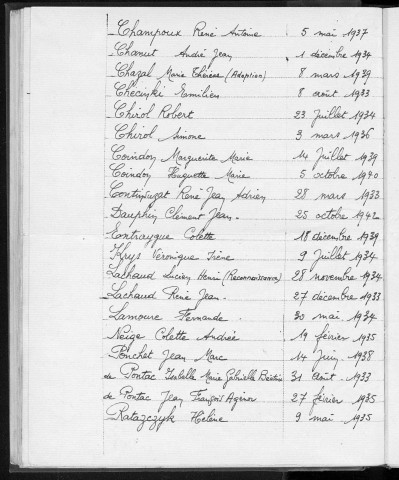 Champoux René Antoine 5 mai 1937
Chanut André Jean 1 décembre 1934
Chazal Marie Thérèse (Adoption) 8 mars 1939
Checinski Emilien 8 août 1933
Chirol Robert 23 Juillet 1934
Chirol Simone 3 mars 1936
Coindon Marguerite Marie 14 Juillet 1939
Coindon Huguette Marie 5 octobre 1940
Continsuzat René Jean Adrien 28 mars 1933
Dauphin Clément Jean. 25 octobre 1942
Entraygue Colette 18 décembre 1939
Krys Véronique Irène 9 Juillet 1934
Lachaud Lucien Henri (Reconnaissance) 28 novembre 1934
Lachaud René Jean. 27 décembre 1933
Lamoure Fernande. 30 mai 1934
Neige Colette Andrée 19 février 1935
Ponchet Jean Marc 14 Juin 1938
de Pontac Isabelle Marie Gabrielle 31 Août 1933
de Pontac Jean François Agénor 27 février 1935
Ratazczyk Hélène 9 mai 1935